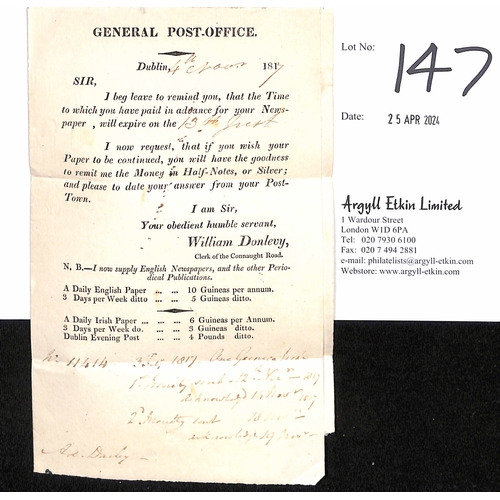 GENERAL POST-OFFICE.
Dublin, 4th Novr 1817
SIR,
I beg leave to remind you, that the Time
to which you have paid in advance for your News-
paper , will expire on the 13th Inst
I now request, that if you wish your
Paper to be continued, you will have the goodness
to remit me the Money in Half-Notes, or Silver;
and please to date your answer from your Post-
Town.
I am Sir,
Your obedient humble servant,
William Donlevy,
Clerk of the Connaught Road.
N. B.—I now supply English Newspapers, and the other Perio-
dical Publications.
A Daily English Paper ... ... 10 Guineas per annum.
3 Days per Week ditto ... ... 5 Guineas ditto.
A Daily Irish Paper ... ... ... 6 Guineas per Annum.
3 Days per Week do. ... ... 3 Guineas ditto.
Dublin Evening Post ... ... 4 Pounds ditto.
No 11414 1817 One Guinea
sent 12th Novr 1817
acknowledged 14 Novr 1817
2d sent
acknowledged 19 Novr
Lot No: 147
Date: 25 APR 2024
Argyll Etkin Limited
1 Wardour Street
London W1D 6PA
Tel: 020 7930 6100
Fax: 020 7 494 2881
e-mail: philatelists@argyll-etkin.com
Webstore: www.argyll-etkin.com